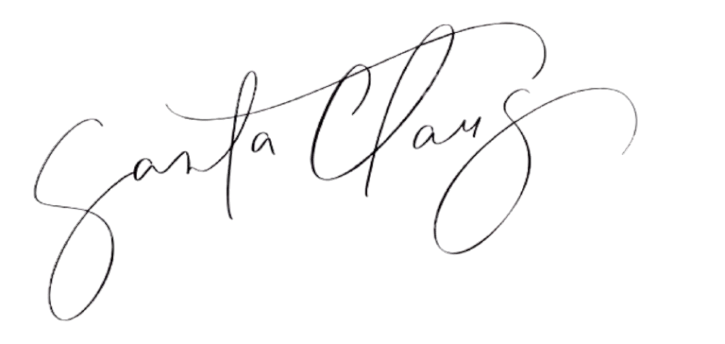 Santa Claus